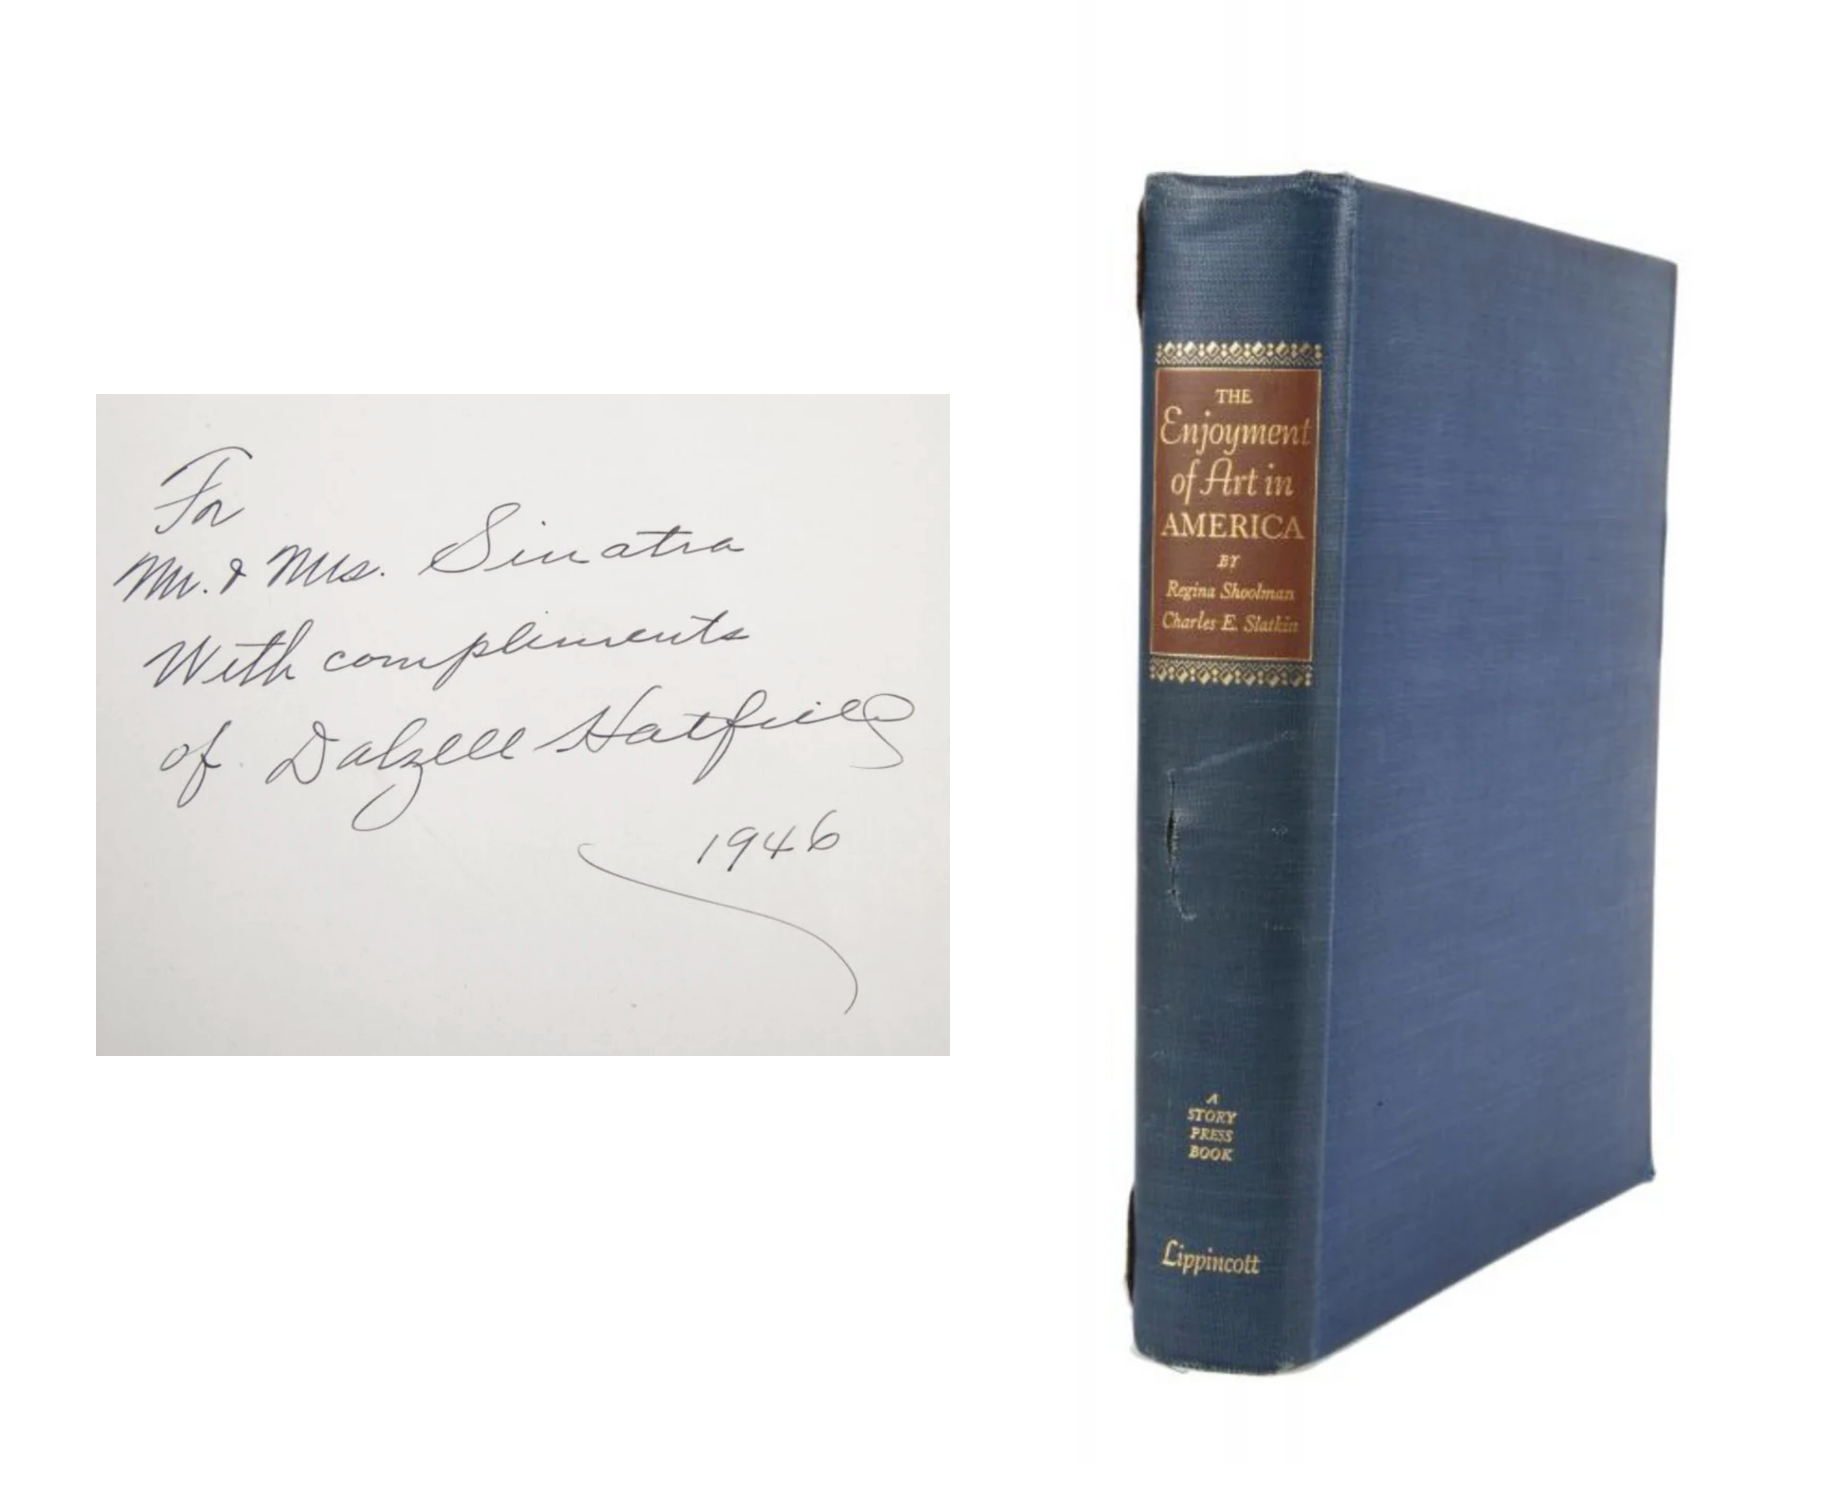 For
Mr. & Mrs. Sinatra
With compliments
of Dalzell Hatfield
1946
THE
Enjoyment
of Art in
AMERICA
BY
Regina Shoolman
Charles E. Slatkin
A
STORY
PRESS
BOOK
Lippincott